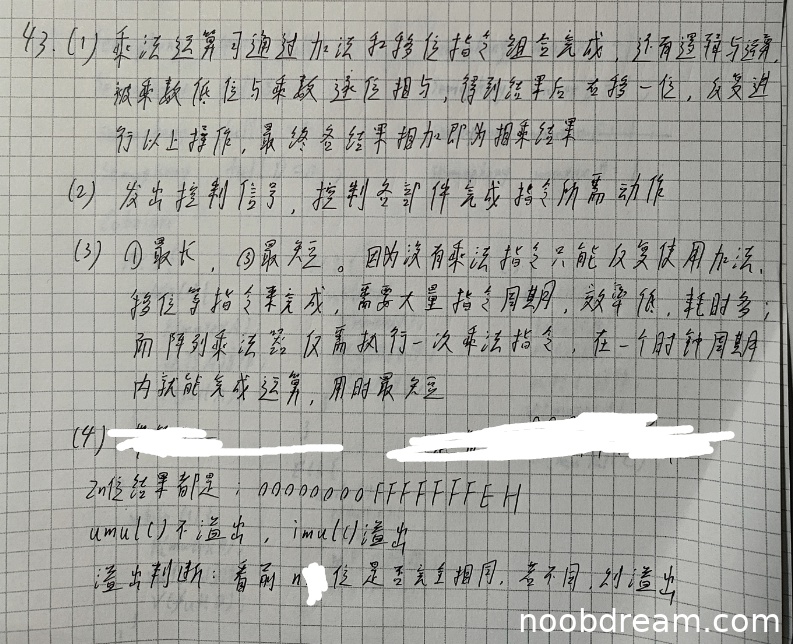 43.(1) 乘法运算可通过加法和移位指令组合完成,还有逻辑与运算,
被乘数低位与乘数逐位相与,得到结果后右移一位,反复进
行以上操作,最终各结果相加即为相乘结果
(2) 发出控制信号,控制各部件完成指令所需动作
(3) ①最长,③最短。因为没有乘法指令只能反复使用加法、
移位等指令来完成,需要大量指令周期,效率低,耗时多;
而阵列乘法器仅需执行一次乘法指令,在一个时钟周期
内就能完成运算,用时最短
(4)
2n位结果都是:00000000FFFFFFFEH
umul()不溢出,imul()溢出
溢出判断:看前n 位是否完全相同,若不同,则溢出
noobdream.com